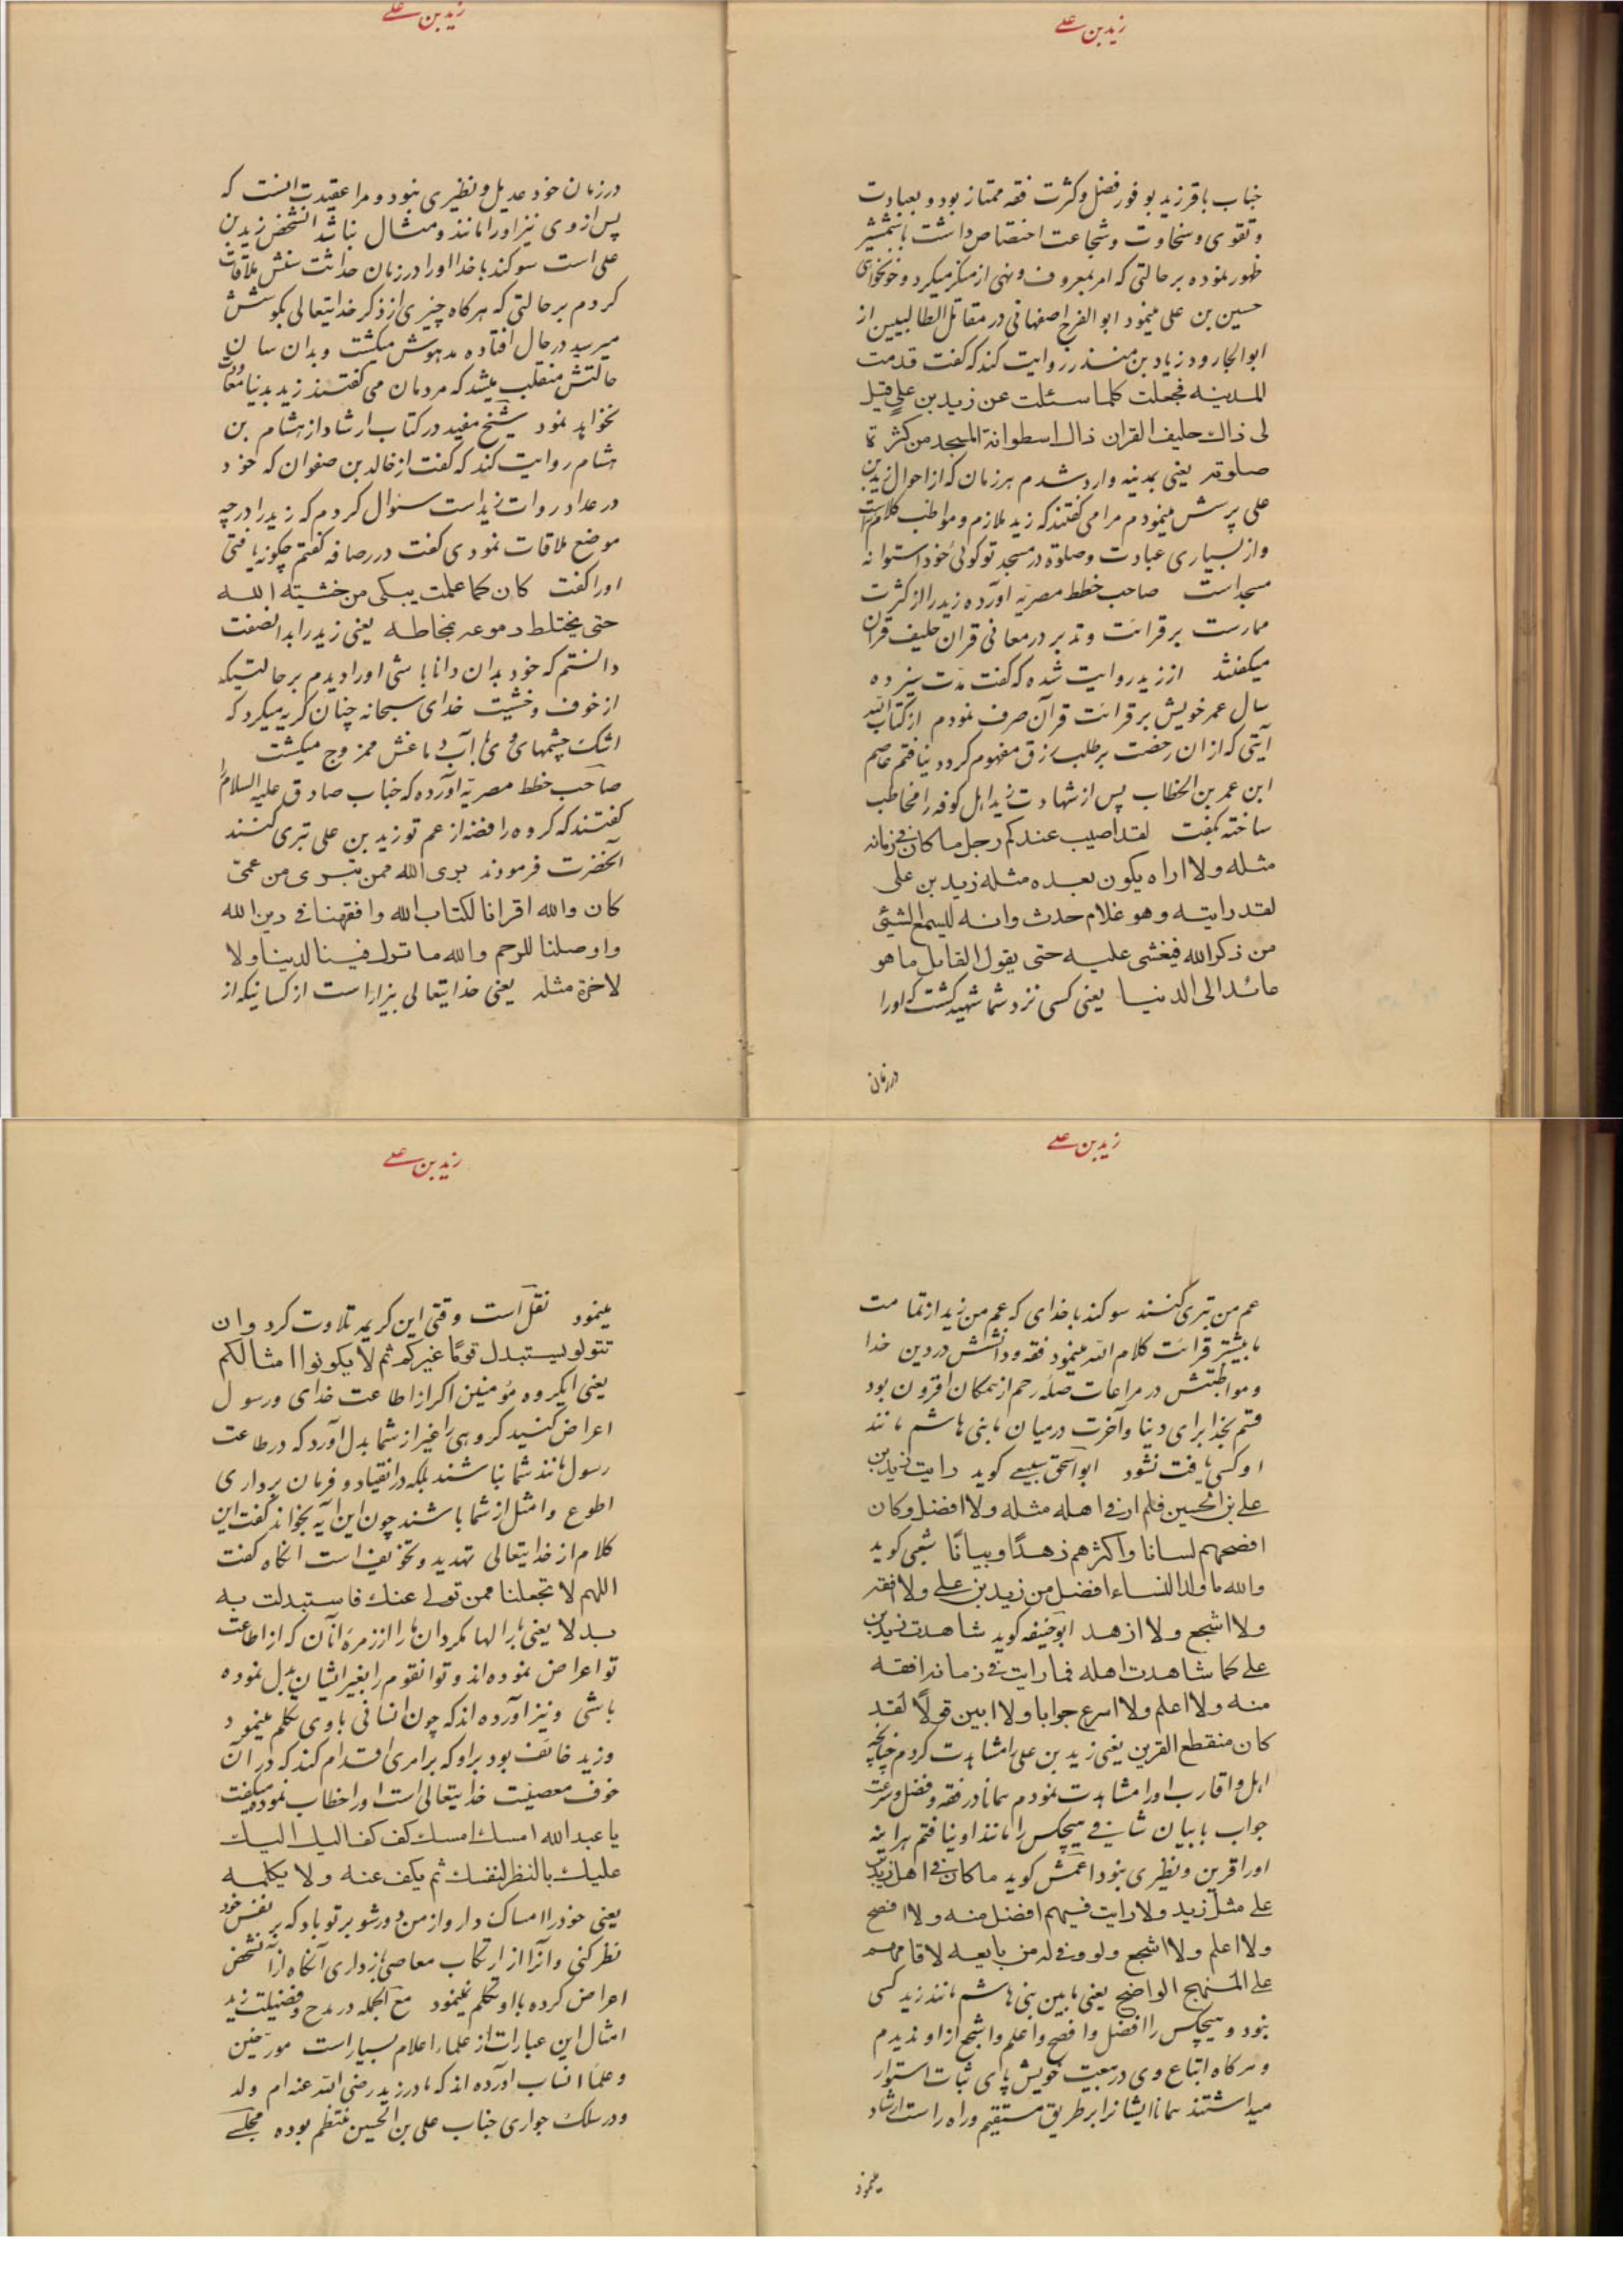 زید بن علی
جناب باقر زید بوفور فضل و کثرت فقه ممتاز بود و بعبادت
و تقوی و سخاوت و شجاعت اختصاص داشت با شمشیر
ظهور نموده بر حالتی که امر بمعروف و نهی از منکر میکرد و خونخواهی
حسین بن علی مینمود ابو الفرج اصفهانی در مقاتل الطالبیین از
ابو الجارود زیاد بن منذر روایت کند که گفت قدمت
المدینه فجعلت کلما سئلت عن زید بن علی قیل
لی ذاك حلیف القران ذاك اسطوانة المسجد من کثرة
صلوته یعنی بمدینه وارد شدم هر زمان که از احوال زید بن
علی پرسش مینمودم مرا می گفتند که زید ملازم و مواظب کلام الله است
و از بسیاری عبادت و صلوة در مسجد تو گوئی خود استوانه
مسجد است صاحب خطط مصریه آورده زید را از کثرت
ممارست بر قرائت و تدبر در معانی قران حلیف قران
میگفتند از زید روایت شده که گفت مدت سیزده
سال عمر خویش بر قرائت قرآن صرف نمودم از کتاب الله
آیتی که از ان رخصت بر طلب رزق مفهوم گردد نیافتم عاصم
ابن عمر بن الخطاب پس از شهادت زید اهل کوفه را مخاطب
ساخته بگفت لقد اصیب عندکم رجل ما کان فی زمانه
مثله ولا اراه یکون بعده مثله زید بن علی
لقد رایته و هو غلام حدث و انه لیسمع الشیئ
من ذکر الله فیغشی علیه حتی یقول القایل ما هو
عائد الی الدنیا یعنی کسی نزد شما شهید گشت که او را
در زمان
زید بن علی
در زمان خود عدیل و نظیری نبود و مرا عقیدت انست که
پس از وی نیز او را مانند و مثال نباشد انشخص زید بن
علی است سوگند با خدا او را در زمان حداثت سنش ملاقات
کردم بر حالتی که هر کاه چیزی از ذکر خدایتعالی بکوشش
میرسید در حال افتاده مدهوش میکشت و بدان سان
حالتش منقلب میشد که مردمان می گفتند زید بدنیا معاودت
نخواهد نمود شیخ مفید در کتاب ارشاد از هشام بن
هشام روایت کند که گفت از خالد بن صفوان که خود
در عداد روات زید است سئوال کردم که زید را در چه
موضع ملاقات نمودی گفت در رصافه گفتم چگونه یافتی
او را گفت کان کما علمت یبکی من خشیته الله
حتی یختلط دموعه بمخاطه یعنی زید را بدانصفت
دانستم که خود بدان دانا باشی او را دیدم بر حالتیکه
از خوف و خشیت خدای سبحانه چنان گریه میکرد که
اشك چشمهای وی با آب دماغش ممزوج میکشت
صاحب خطط مصریه آورده که جناب صادق علیه السلام را
گفتند که گروه رافضه از عم تو زید بن علی تبری کنند
آنحضرت فرمودند بری الله ممن تبری من عمی
کان والله اقرانا لکتاب الله و افقهنا فی دین الله
و اوصلنا للرحم و الله ما ترك فینا لدینا ولا
لاخرة مثله یعنی خدایتعالی بیزار است از کسانیکه از
زید بن علی
عم من تبری کنند سوگند با خدای که عم من زید از تمامت
ما بیشتر قرائت کلام الله مینمود فقه و دانشش در دین خدا
و مواظبتش در مراعات صله رحم از همکان افزون بود
قسم بخدا برای دنیا و آخرت در میان ما بنی هاشم مانند
او کسی یافت نشود ابو اسحق سبیعی گوید رایت زید بن
علی بن الحسین فلم ار فی اهله مثله ولا افضل و کان
افصحهم لسانا و اکثرهم زهدًا و بیانًا شعبی گوید
والله ما ولد النساء افضل من زید بن علی ولا افقه
ولا اشجع ولا ازهد ابو حنیفه گوید شاهدت زید بن
علی کما شاهدت اهله فما رایت فی زمانه افقه
منه ولا اعلم ولا اسرع جوابا ولا ابین قولًا لقد
کان منقطع القرین یعنی زید بن علی را مشاهدت کردم چنانچه
اهل و اقارب او را مشاهدت نمودم همانا در فقه و فضل و سرعت
جواب با بیان شافی هیچکس را مانند او نیافتم هر اینه
او را قرین و نظیری نبود اعمش گوید ما کان فی اهل زید بن
علی مثل زید ولا رایت فیهم افضل منه ولا افصح
ولا اعلم ولا اشجع ولو وفی له من بایعه لاقامهم
علی المنهج الواضح یعنی ما بین بنی هاشم مانند زید کسی
نبود و هیچکس را افضل و افصح و اعلم و اشجع از او ندیدم
و هر کاه اتباع وی در بیعت خویش پای ثبات استوار
میداشتند همانا ایشانرا بر طریق مستقیم و راه راست ارشاد
مینمود
زید بن علی
مینمود نقل است وقتی این کریمه تلاوت کرد و ان
تتولو یستبدل قومًا غیرکم ثم لا یکونوا امثالکم
یعنی ایگروه مؤمنین اگر از اطاعت خدای و رسول
اعراض کنید گروهی را غیر از شما بدل آورد که در طاعت
رسول مانند شما نباشند بلکه در انقیاد و فرمان برداری
اطوع و امثل از شما باشند چون این آیه بخواند گفت این
کلام از خدایتعالی تهدید و تخویف است انگاه گفت
اللهم لا تجعلنا ممن تولی عنك فاستبدلت به
بدلا یعنی بار الها مگردان ما را از زمره آنان که از اطاعت
تو اعراض نموده اند و تو انقوم را بغیر ایشان بدل نموده
باشی و نیز آورده اند که چون انسانی با وی تکلم مینمود
و زید خائف بود بر او که بر امری اقدام کند که در ان
خوف معصیت خدایتعالی است او را خطاب نموده میگفت
یا عبدالله امسك امسك کف کف الیك الیك
علیك بالنظر لنفسك ثم یکف عنه ولا یکلمه
یعنی خود را امساك دار و از من دور شو بر تو باد که بر نفس خود
نظر کنی و آنرا از ارتکاب معاصی بازداری آنگاه از آنشخص
اعراض کرده با او تکلم نمینمود مع الجمله در مدح و فضیلت زید
امثال این عبارات از علماء اعلام بسیار است مورخین
و علماء انساب آورده اند که مادر زید رضی الله عنه ام ولد
و در سلك جواری جناب علی بن الحسین منتظم بوده